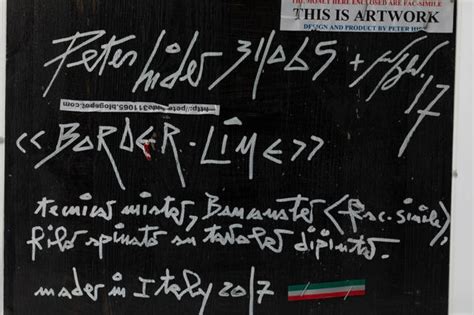 THE MONEY HERE ENCLOSED ARE FAC-SIMILE
THIS IS ARTWORK
DESIGN AND PRODUCT BY PETER
Peter hider 311065 +
17
<<BORDER-LINE>>
tecnica mista, Banconote (fac-simile),
filo spinato su tavola dipinta.
made in Italy 2017